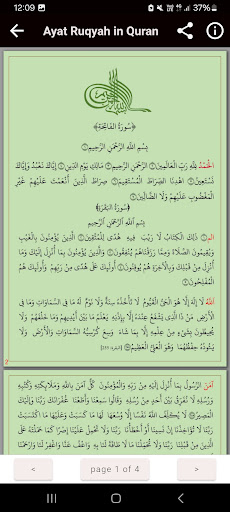 12:09 37%
Ayat Ruqyah in Quran
﴿سُورَةُ الفَاتِحَة﴾
بِسْمِ اللَّهِ الرَّحْمَنِ الرَّحِيمِ ۝
الْحَمْدُ لِلَّهِ رَبِّ الْعَالَمِينَ ۝ الرَّحْمَنِ الرَّحِيمِ ۝ مَالِكِ يَوْمِ الدِّينِ ۝ إِيَّاكَ نَعْبُدُ وَإِيَّاكَ
نَسْتَعِينُ ۝ اهْدِنَا الصِّرَاطَ الْمُسْتَقِيمَ ۝ صِرَاطَ الَّذِينَ أَنْعَمْتَ عَلَيْهِمْ غَيْرِ
الْمَغْضُوبِ عَلَيْهِمْ وَلَا الضَّالِّينَ ۝
﴿سُورَةُ البَقَرَة﴾
بِسْمِ اللَّهِ الرَّحْمَنِ الرَّحِيمِ
الم ۝ ذَلِكَ الْكِتَابُ لَا رَيْبَ فِيهِ هُدًى لِلْمُتَّقِينَ ۝ الَّذِينَ يُؤْمِنُونَ بِالْغَيْبِ
وَيُقِيمُونَ الصَّلَاةَ وَمِمَّا رَزَقْنَاهُمْ يُنْفِقُونَ ۝ وَالَّذِينَ يُؤْمِنُونَ بِمَا أُنْزِلَ إِلَيْكَ وَمَا
أُنْزِلَ مِنْ قَبْلِكَ وَبِالْآخِرَةِ هُمْ يُوقِنُونَ ۝ أُولَئِكَ عَلَى هُدًى مِنْ رَبِّهِمْ وَأُولَئِكَ هُمُ
الْمُفْلِحُونَ ۝
اللَّهُ لَا إِلَهَ إِلَّا هُوَ الْحَيُّ الْقَيُّومُ لَا تَأْخُذُهُ سِنَةٌ وَلَا نَوْمٌ لَهُ مَا فِي السَّمَاوَاتِ وَمَا فِي
الْأَرْضِ مَنْ ذَا الَّذِي يَشْفَعُ عِنْدَهُ إِلَّا بِإِذْنِهِ يَعْلَمُ مَا بَيْنَ أَيْدِيهِمْ وَمَا خَلْفَهُمْ وَلَا
يُحِيطُونَ بِشَيْءٍ مِنْ عِلْمِهِ إِلَّا بِمَا شَاءَ وَسِعَ كُرْسِيُّهُ السَّمَاوَاتِ وَالْأَرْضَ وَلَا
يَئُودُهُ حِفْظُهُمَا وَهُوَ الْعَلِيُّ الْعَظِيمُ
آمَنَ الرَّسُولُ بِمَا أُنْزِلَ إِلَيْهِ مِنْ رَبِّهِ وَالْمُؤْمِنُونَ كُلٌّ آمَنَ بِاللَّهِ وَمَلَائِكَتِهِ وَكُتُبِهِ
وَرُسُلِهِ لَا نُفَرِّقُ بَيْنَ أَحَدٍ مِنْ رُسُلِهِ وَقَالُوا سَمِعْنَا وَأَطَعْنَا غُفْرَانَكَ رَبَّنَا وَإِلَيْكَ
الْمَصِيرُ ۝ لَا يُكَلِّفُ اللَّهُ نَفْسًا إِلَّا وُسْعَهَا لَهَا مَا كَسَبَتْ وَعَلَيْهَا مَا اكْتَسَبَتْ
رَبَّنَا لَا تُؤَاخِذْنَا إِنْ نَسِينَا أَوْ أَخْطَأْنَا رَبَّنَا وَلَا تَحْمِلْ عَلَيْنَا إِصْرًا كَمَا حَمَلْتَهُ عَلَى
الَّذِينَ مِنْ قَبْلِنَا رَبَّنَا وَلَا تُحَمِّلْنَا مَا لَا طَاقَةَ لَنَا بِهِ وَاعْفُ عَنَّا وَاغْفِرْ لَنَا وَارْحَمْنَا
< page 1 of 4 >